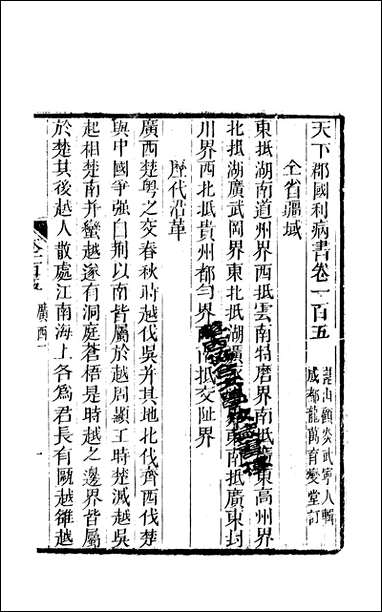 天下郡國利病書卷一百五
崑山顧炎武寧人輯
成都龍萬育燮堂訂
全省疆域
東抵湖南道州界西抵雲南特磨界南抵廣東高州界
北抵湖廣武岡界東北抵湖廣 界東南抵廣東封
川界西北抵貴州都勻界 抵交阯界
歷代沿革
廣西楚粵之交春秋時越伐吳并其地北伐齊西伐楚
與中國爭强自荆以南皆屬於越周顯王時楚滅越吳
起相楚南并蠻越遂有洞庭蒼梧是時越之邊界皆屬
於楚其後越人散處江南海上各為君長有甌越雒越
卷一百五 廣西一 一